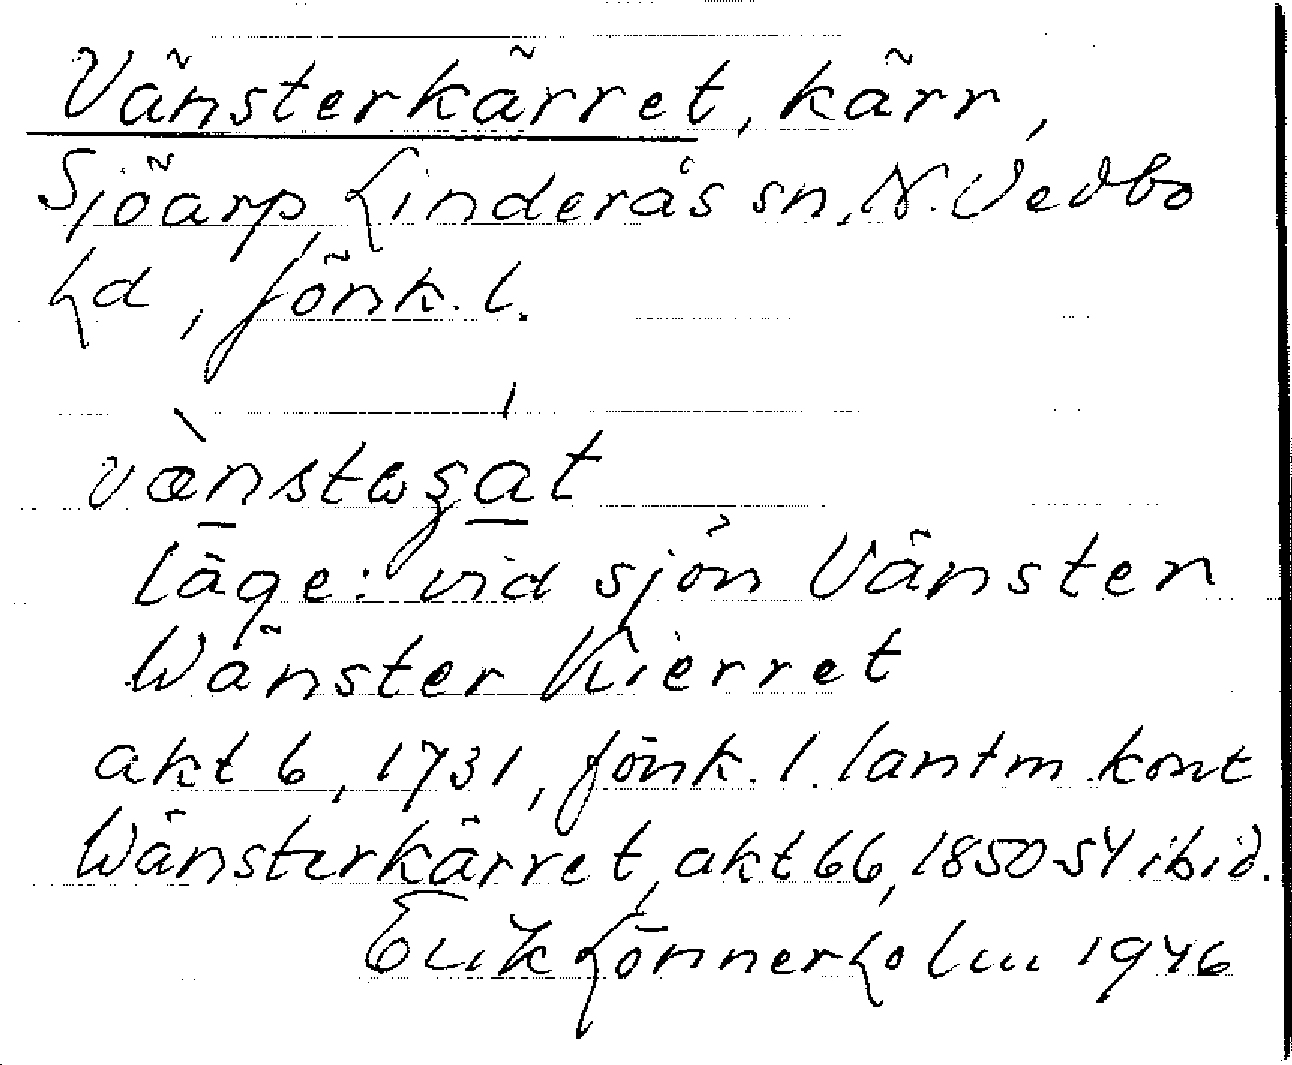 Vänsterkärret, kärr,
Sjöarp, Linderås sn, N. Vedbo
hd, Jönk. l.
Läge: vid sjön Vänsten
Wänster Kierret
akt 6, 1731, Jönk. l. lantm. kont
Wänsterkärret, akt 66, 1850-54 ibid.
Erik Lönnerholm 1946